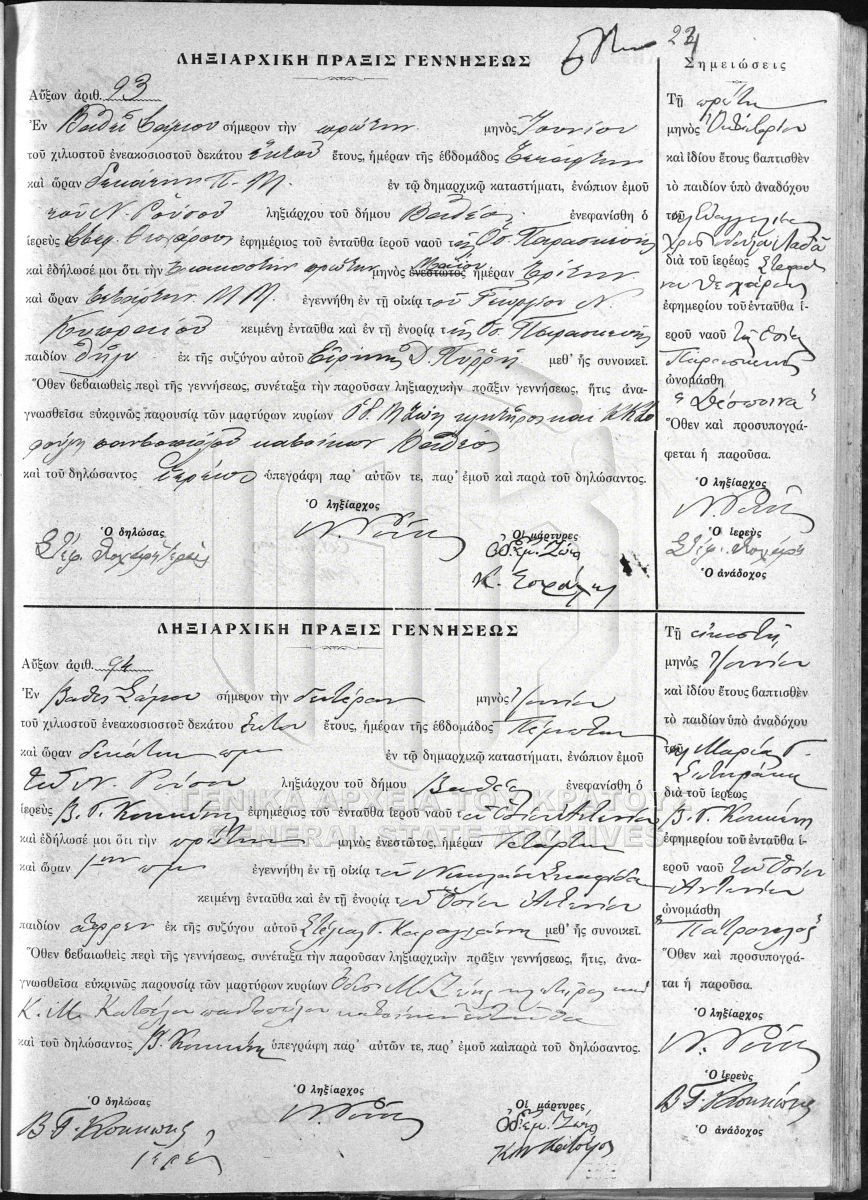 ΛΗΞΙΑΡΧΙΚΗ ΠΡΑΞΙΣ ΓΕΝΝΗΣΕΩΣ
Αὔξων ἀριθ. 93
Ἐν Βαθεῖ Σάμου σήμερον τὴν πρώτην μηνὸς Ἰουνίου
τοῦ χιλιοστοῦ ἐνεακοσιοστοῦ δεκάτου ἕκτου ἔτους, ἡμέραν τῆς ἑβδομάδος Τετάρτην
καὶ ὥραν δεκάτην Π.Μ. ἐν τῷ δημαρχικῷ καταστήματι, ἐνώπιον ἐμοῦ
τοῦ Ν. Ρούσου ληξιάρχου τοῦ δήμου Βαθέος ἐνεφανίσθη ὁ
ἱερεὺς Στεφ. Θεοχάρους ἐφημέριος τοῦ ἐνταῦθα ἱεροῦ ναοῦ τῆς Ὁσ. Παρασκευῆς
καὶ ἐδήλωσέ μοι ὅτι τὴν τριακοστὴν πρώτην μηνὸς ἐνεστῶτος Μαΐου ἡμέραν Τρίτην
καὶ ὥραν τετάρτην Μ.Μ. ἐγεννήθη ἐν τῇ οἰκίᾳ τοῦ Γεωργίου Ν.
κειμένῃ ἐνταῦθα καὶ ἐν τῇ ἐνορίᾳ τῆς Ὁσ. Παρασκευῆς
παιδίον θῆλυ ἐκ τῆς συζύγου αὐτοῦ Εἰρήνης Δ. μεθ' ἧς συνοικεῖ.
Ὅθεν βεβαιωθεὶς περὶ τῆς γεννήσεως, συνέταξα τὴν παροῦσαν ληξιαρχικὴν πρᾶξιν γεννήσεως, ἥτις ἀνα-
γνωσθεῖσα εὐκρινῶς παρουσίᾳ τῶν μαρτύρων κυρίων Ὀδ. Μ Ζώη κλητῆρος καὶ
παντοπώλου κατοίκων Βαθέος
καὶ τοῦ δηλώσαντος ἱερέως ὑπεγράφη παρ' αὐτῶν τε, παρ' ἐμοῦ καὶ παρὰ τοῦ δηλώσαντος.
Ὁ δηλώσας
Στέφ. Θεοχάρης Ἱερεὺς
Ὁ ληξίαρχος
Ν. Ρούσος
Οἱ μάρτυρες
Ὀδ. Εμ. Ζώης
Κ.
Σημειώσεις
Τῇ πρώτῃ
μηνὸς Ὀκτωβρίου
καὶ ἰδίου ἔτους βαπτισθὲν
τὸ παιδίον ὑπὸ ἀναδόχου
τῆς Εὐαγγελίας
διὰ τοῦ ἱερέως Στεφά
νου Θεοχάρους
ἐφημερίου τοῦ ἐνταῦθα ἱ-
εροῦ ναοῦ τῆς Ὁσίας
Παρασκευῆς
ὠνομάσθη
"Δέσποινα"
Ὅθεν καὶ προσυπογρά-
φεται ἡ παροῦσα.
Ὁ ληξίαρχος
Ν. Ρούσος
Ὁ ἱερεὺς
Στέφ. Θεοχάρης
Ὁ ἀνάδοχος
ΛΗΞΙΑΡΧΙΚΗ ΠΡΑΞΙΣ ΓΕΝΝΗΣΕΩΣ
Αὔξων ἀριθ. 94
Ἐν Βαθεῖ Σάμου σήμερον τὴν δευτέραν μηνὸς Ἰουνίου
τοῦ χιλιοστοῦ ἐνεακοσιοστοῦ δεκάτου ἕκτου ἔτους, ἡμέραν τῆς ἑβδομάδος Πέμπτην
καὶ ὥραν δεκάτην πμ ἐν τῷ δημαρχικῷ καταστήματι, ἐνώπιον ἐμοῦ
τοῦ Ν. Ρούσου ληξιάρχου τοῦ δήμου Βαθέος ἐνεφανίσθη ὁ
ἱερεὺς Β. Γ. Κουκώνης ἐφημέριος τοῦ ἐνταῦθα ἱεροῦ ναοῦ τοῦ Ὁσίου Ἀντωνίου
καὶ ἐδήλωσέ μοι ὅτι τὴν πρώτην μηνὸς ἐνεστῶτος, ἡμέραν Τετάρτην
καὶ ὥραν 1ην πμ ἐγεννήθη ἐν τῇ οἰκίᾳ τοῦ Νικολάου
κειμένῃ ἐνταῦθα καὶ ἐν τῇ ἐνορίᾳ τοῦ Ὁσίου Ἀντωνίου
παιδίον ἄρρεν ἐκ τῆς συζύγου αὐτοῦ Στέλλας Γ. Καραγιάννη μεθ' ἧς συνοικεῖ.
Ὅθεν βεβαιωθεὶς περὶ τῆς γεννήσεως, συνέταξα τὴν παροῦσαν ληξιαρχικὴν πρᾶξιν γεννήσεως, ἥτις, ἀνα-
γνωσθεῖσα εὐκρινῶς παρουσίᾳ τῶν μαρτύρων κυρίων Ὀδυσ. Μ. Ζώης κλητῆρος καὶ
Κ. Μ. Κατσέλου παντοπώλου κατοίκων ἐνταῦθα
καὶ τοῦ δηλώσαντος Β. Κουκώνη ὑπεγράφη παρ' αὐτῶν τε, παρ' ἐμοῦ καὶπαρὰ τοῦ δηλώσαντος.
Ὁ δηλώσας
Β Γ. Κουκώνης
Ἱερεύς
Ὁ ληξίαρχος
Ν. Ρούσος
Οἱ μάρτυρες
Ὀδ. Εμ. Ζώης
Κ Μ Κατσέλος
Τῇ εἰκοστῇ
μηνὸς Ἰουνίου
καὶ ἰδίου ἔτους βαπτισθὲν
τὸ παιδίον ὑπὸ ἀναδόχου
τῆς Μαρίας Γ.
διὰ τοῦ ἱερέως
Β. Γ. Κουκώνη
ἐφημερίου τοῦ ἐνταῦθα ἱ-
εροῦ ναοῦ τοῦ Ὁσίου
Ἀντωνίου
ὠνομάσθη
Ὅθεν καὶ προσυπογρά-
ται ἡ παροῦσα.
Ὁ ληξίαρχος
Ν. Ρούσος
Ὁ ἱερεὺς
Β Γ. Κουκώνης
Ὁ ἀνάδοχος
ΓΕΝΙΚΑ ΑΡΧΕΙΑ ΤΟΥ ΚΡΑΤΟΥΣ
GENERAL STATE ARCHIVES